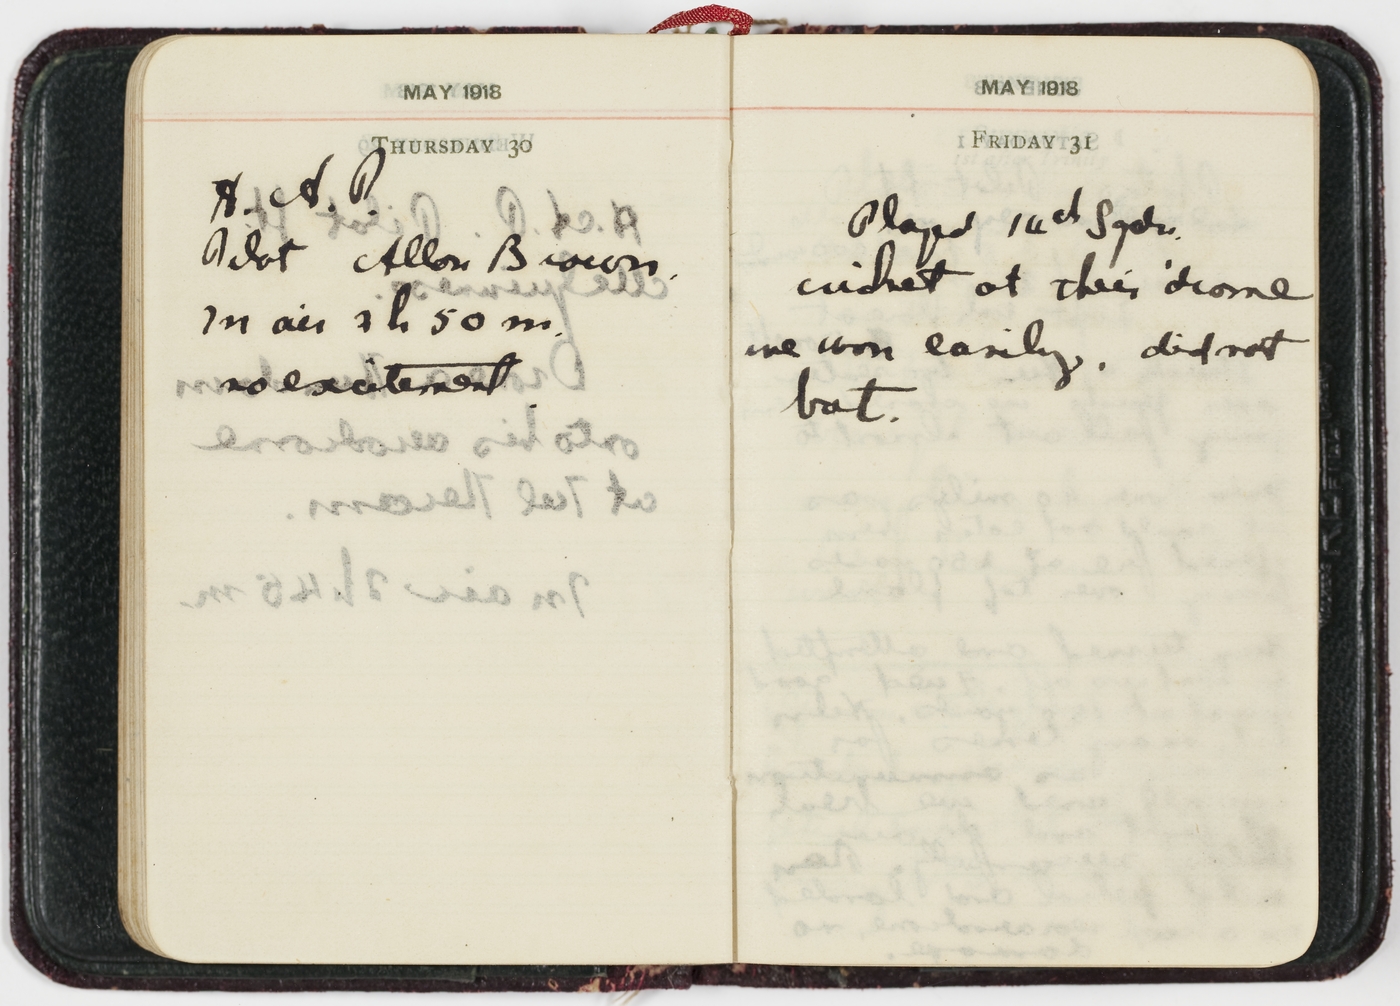 MAY 1918
THURSDAY 30
H. A. P.
Pilot Allon Brown.
In air 2h 50 m.
no excitement.
MAY 1918
FRIDAY 31
Played Sqdn.
cricket at their 'drome
we won easily, did not
bat.